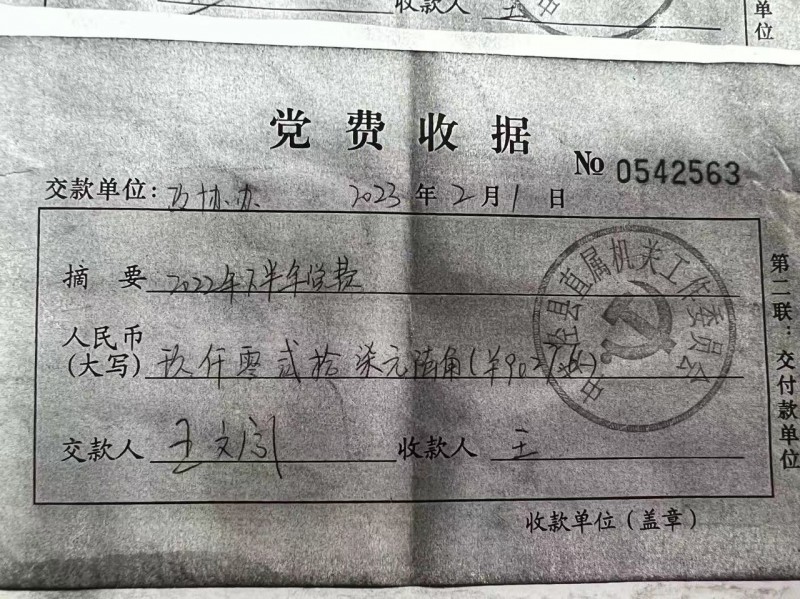 收款人 王
单位
党费收据
№ 0542563
交款单位：政协办 2023年2月1日
摘要 2022年下半年党费
人民币
(大写) 玖仟零贰拾柒元陆角(¥9027.6)
交款人 王文
收款人 王
收款单位（盖章）
第二联：交付款单位
县直属机关工作委员会